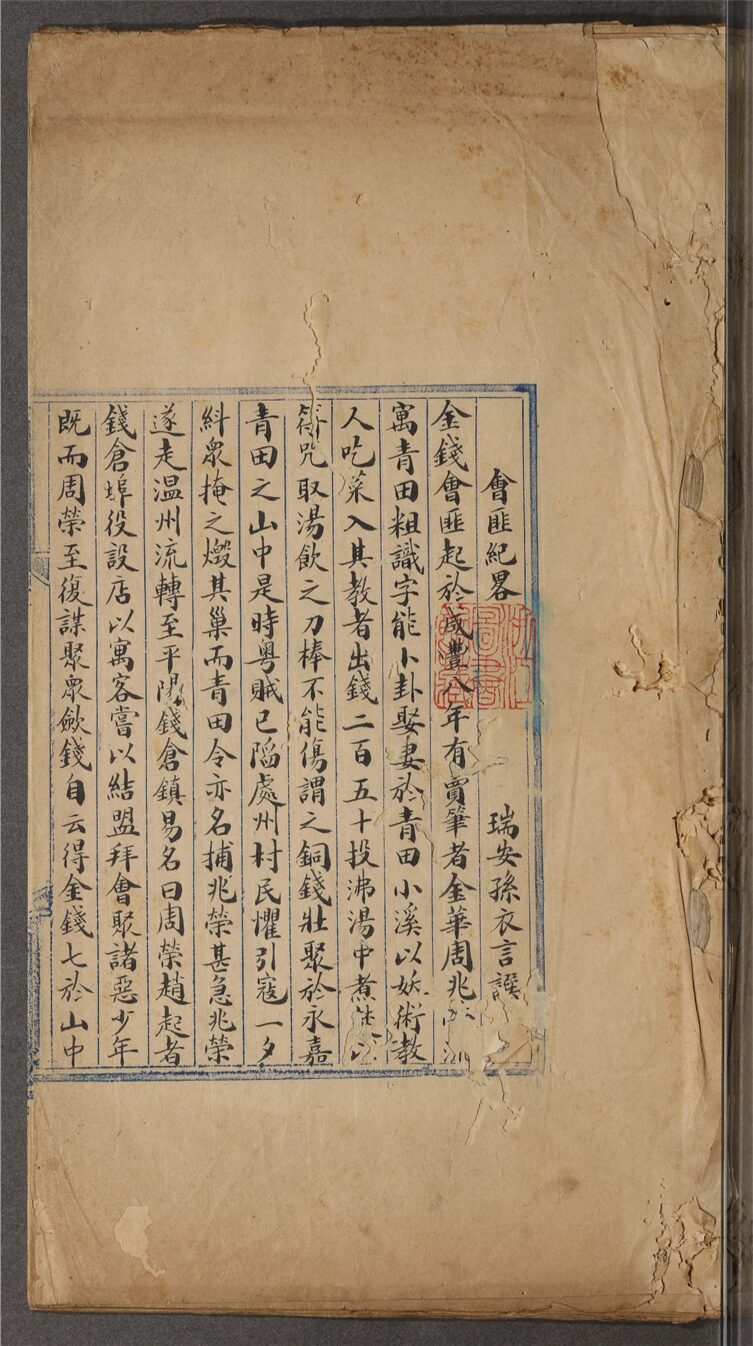 會匪紀畧 瑞安孫衣言譔
金錢會匪起於咸豐八年有賈筆者金華周兆
寓青田粗識字能卜卦娶妻於青田小溪以妖術教
人吃菜入其教者出錢二百五十投沸湯中煮
符咒取湯飲之刀棒不能傷謂之銅錢壯聚於永嘉
青田之山中是時粵賊已陷處州村民懼引寇一夕
糾衆掩之燬其巢而青田令亦名捕兆榮甚急兆榮
遂走温州流轉至平陽錢倉鎮易名曰周榮趙起者
錢倉埠役設店以寓客嘗以結盟拜會聚諸惡少年
既而周榮至復謀聚衆斂錢自云得金錢七於山中
浙江
圖書